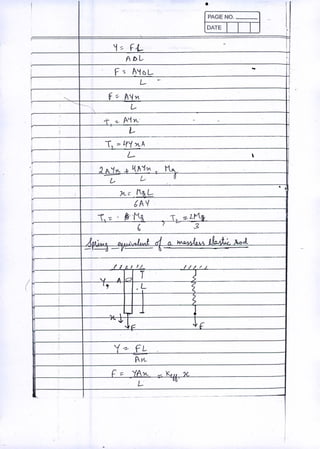 PAGE NO.
DATE
Y = FL
AΔL
F = AYΔL
L
F = AYx
L
T₁ = AYx
L
T₂ = 4YxA
L
2AYx + 4AYx = Mg
L L
x = MgL
6AY
T₁ = Mg , T₂ = 2Mg
6 3
Spring equivalent of a massless elastic rod
Y, A L
x F F
Y = FL
Ax
F = YAx = Keff. x
L